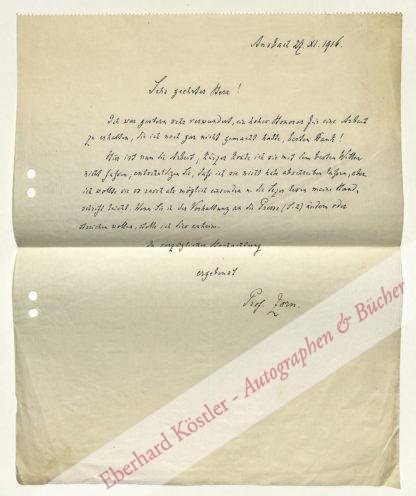 Ansbach 27. XI. 1916.
Sehr geehrter Herr!
Ich war gestern sehr verwundert, ein hohes Honorar für eine Arbeit
zu erhalten, die ich noch gar nicht gemacht hatte, besten Dank!
Hier ist nun die Arbeit, kürzer konnte ich sie mit dem besten Willen
nicht fassen, entschuldigen Sie, daß ich sie nicht habe abschreiben lassen, aber
ich wollte sie so rasch als möglich einsenden u. die Setzer lesen meine Hand-
schrift leicht. Wenn Sie in der Vorhaltung an die Presse (S. 2) ändern oder
streichen wollen, stelle ich dies anheim.
In vorzüglicher Hochachtung
ergebenst
Prof. Zorn.
Eberhard Köstler - Autographen & Bücher